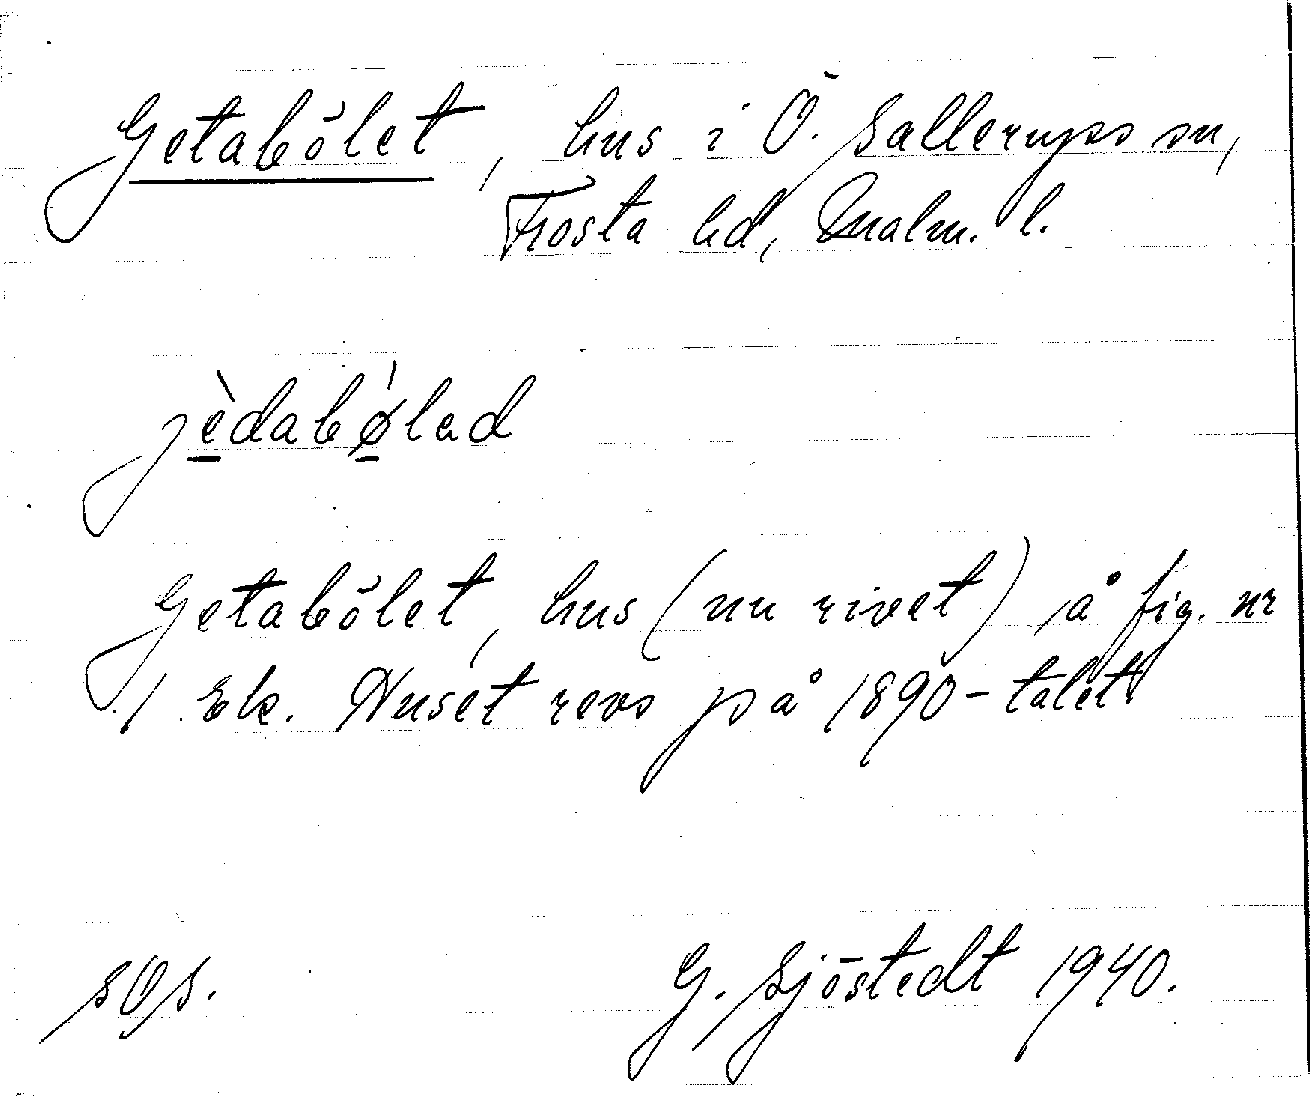 Getabölet, hus i Ö. Sallerups sn,
Frosta hd, Malm. l.
jèdabǿlad
Getabölet, hus (nu rivet) å fig. nr
1 Ek. Huset revs på 1890-talet
sOs.
G. Sjöstedt 1940.